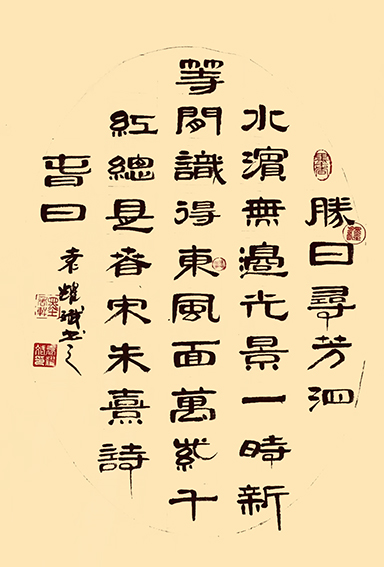 勝日尋芳泗
水濱無邊光景一時新
等閒識得東風面萬紫千
紅總是春宋朱熹詩
春日
袁耀斌書之